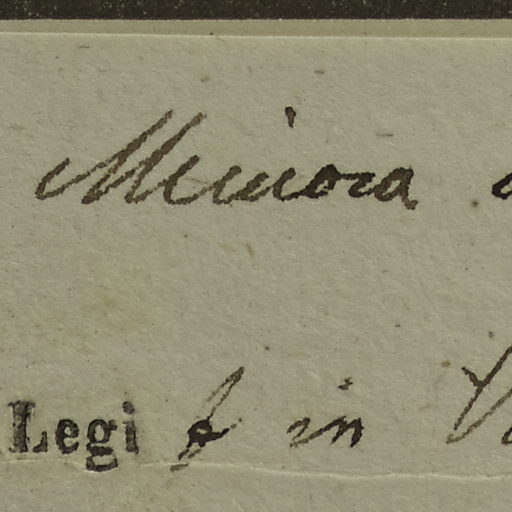 Minora
Legi & in